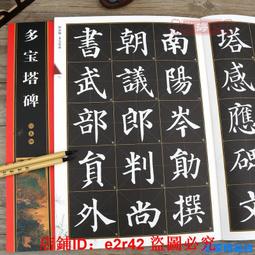 多宝塔碑
塔感應碑文
南陽岑勛撰
朝議郎判尚
書武部員外
店鋪ID：e2r42 盜圖必究